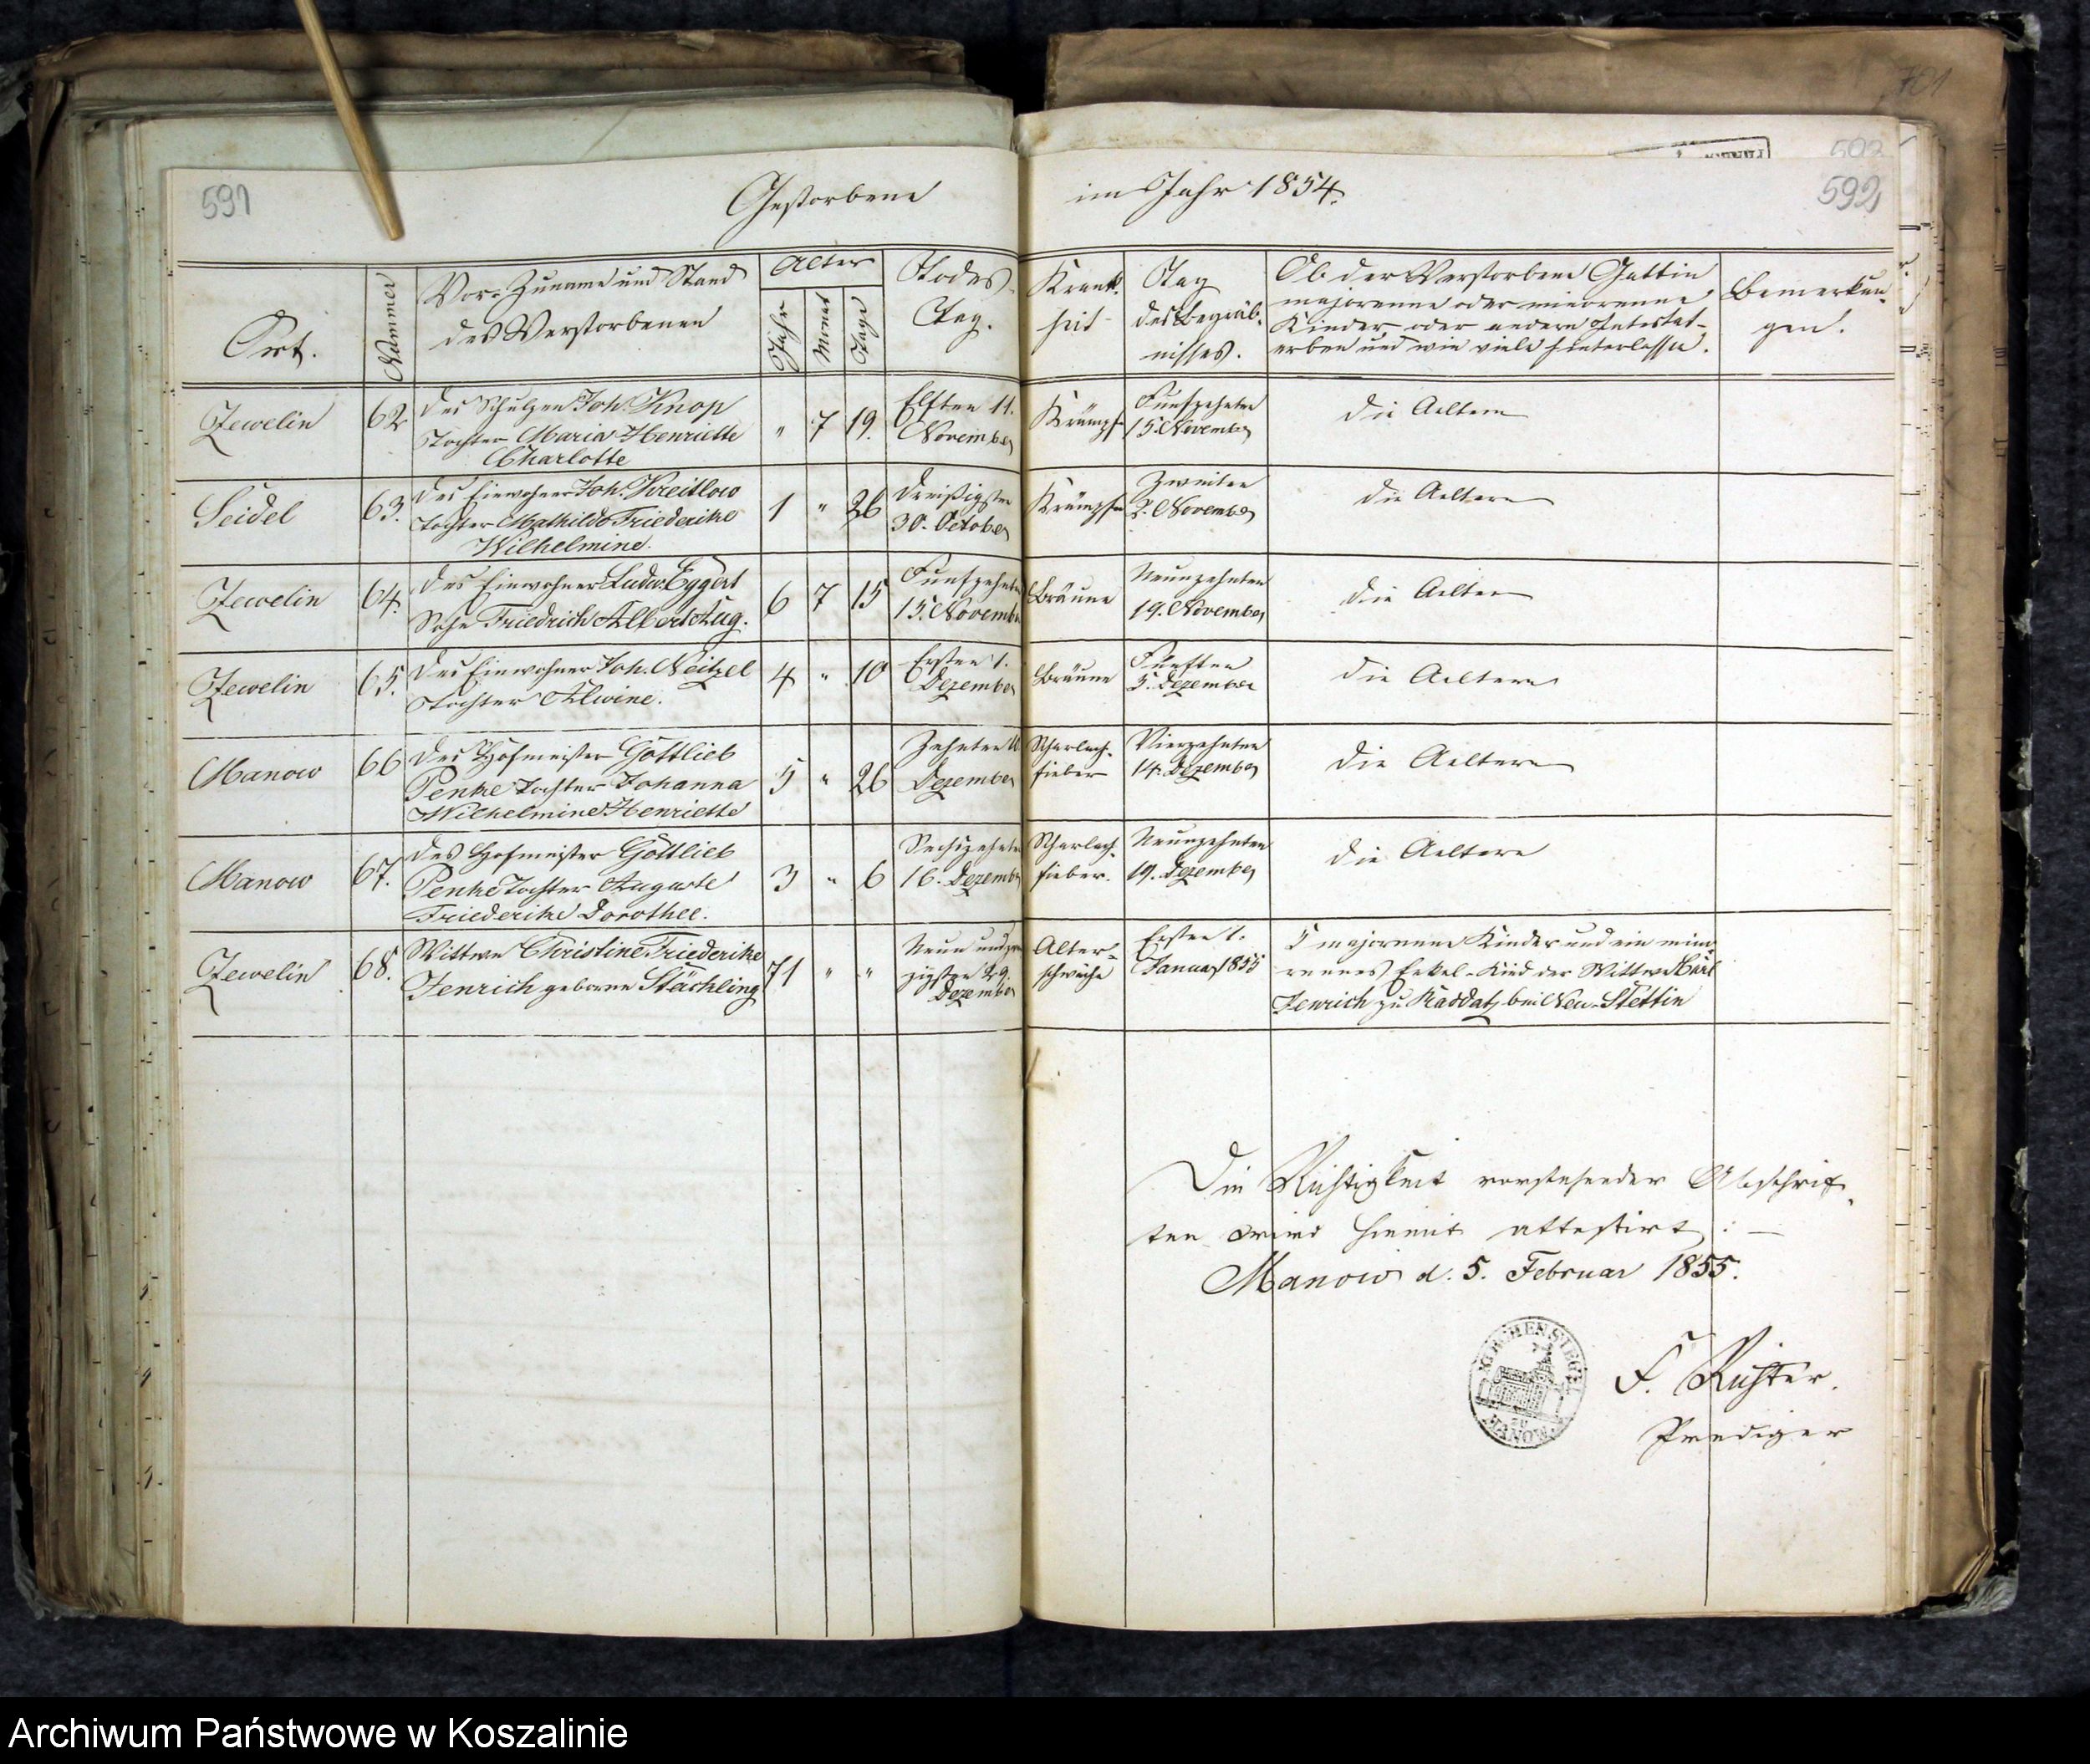 701
592
591
592
Gestorbene im Jahr 1854.
Ort.
Nummer
Vor- Zuname und Stand
des Verstorbenen
Alter
Jahr
Monat
Tage
Todes-
Tag.
Krank-
heit
Tag
des Begräb-
nisses.
Ob der Verstorbene Gattin
majorenne oder minorenne
Kinder, oder andere Intestat-
erben und wie viele hinterlassen.
Bemerkun-
gen.
Zewelin
62
Des Schulzen Joh. Knop
Tochter Maria Henriette
Charlotte
" 7 19.
Elften 11.
November
Krämpfe
Funfzehnten
15. November
Die Aeltern
Seidel
63.
Des Einwohner Joh. Kreitlow
Tochter Mathilde Friederike
Wilhelmine.
1 " 26
Dreißigsten
30. October
Krämpfe
Zweiten
2. November
Die Aeltern
Zewelin
64.
Des Einwohner Ludw. Eggert
Sohn Friedrich Albert Aug.
6 7 15
Funfzehnten
15. November
Bräune
Neunzehnten
19. November
Die Aeltern
Zewelin
65.
Des Einwohner Joh. Neitzel
Tochter Alwine.
4 " 10
Ersten 1.
Dezember
Bräune
Fünften
5. Dezember
Die Aeltern
Manow
66
Des Hofmeister Gottlieb
Penke Tochter Johanna
Wilhelmine Henriette
5 " 26
Zehnten 10
Dezember
Scharlach-
fieber
Vierzehnten
14. Dezember
Die Aeltern
Manow
67.
Des Hofmeister Gottlieb
Penke Tochter Auguste
Friederike Dorothee.
3 " 6
Sechszehnten
16. Dezember
Scharlach-
fieber.
Neunzehnten
19. Dezember
Die Aeltern
Zewelin
68.
Wittwe Christine Friederike
Jenrich geborne Stächling
71 " "
Neun und zwan
zigsten 29.
Dezember
Alter-
schwäche
Ersten 1.
Januar 1855
5 majorenne Kinder und ein mino-
rennes Enkel-Kind der Wittwe Carl
Jenrich zu Raddatz bei Neu-Stettin
Die Richtigkeit vorstehender Abschrif-
ten wird hiemit attestirt :—
Manow d. 5. Februar 1855.
KIRCHENSIEGEL
ZU
MANOW
F. Richter.
Prediger
Archiwum Państwowe w Koszalinie